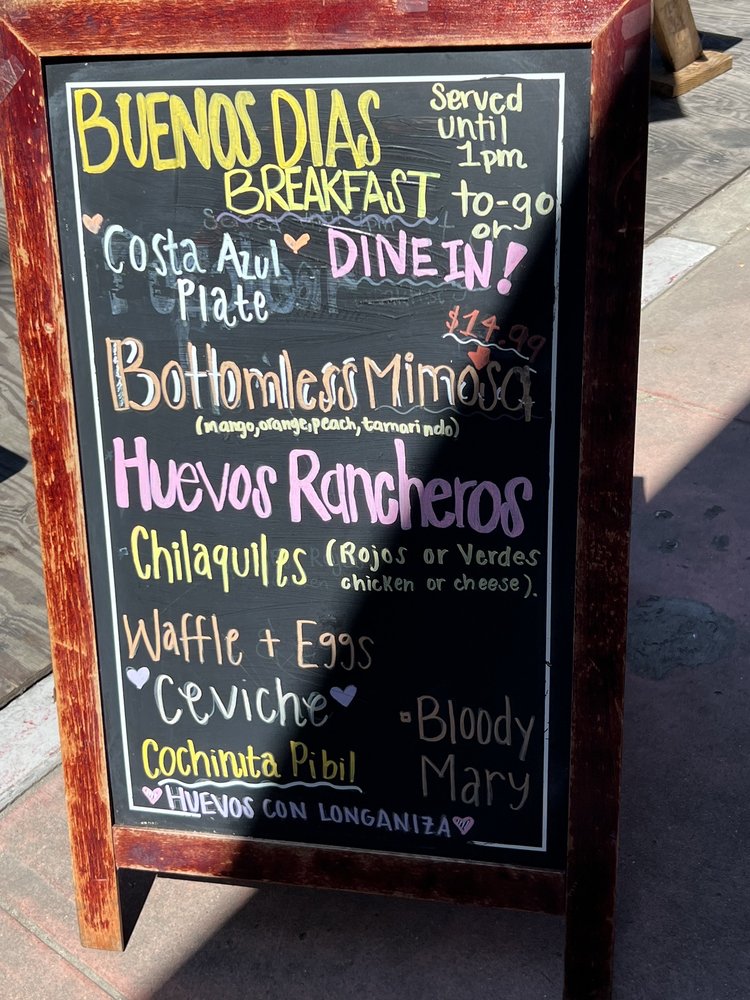 BUENOS DIAS
BREAKFAST
Served
until
1pm
to-go
or
DINE IN!
Costa Azul
Plate
$14.99
Bottomless Mimosa
(mango,orange,peach,tamarindo)
Huevos Rancheros
Chilaquiles (Rojos or Verdes
chicken or cheese).
Waffle + Eggs
Ceviche
Bloody
Mary
Cochinita Pibil
HUEVOS CON LONGANIZA